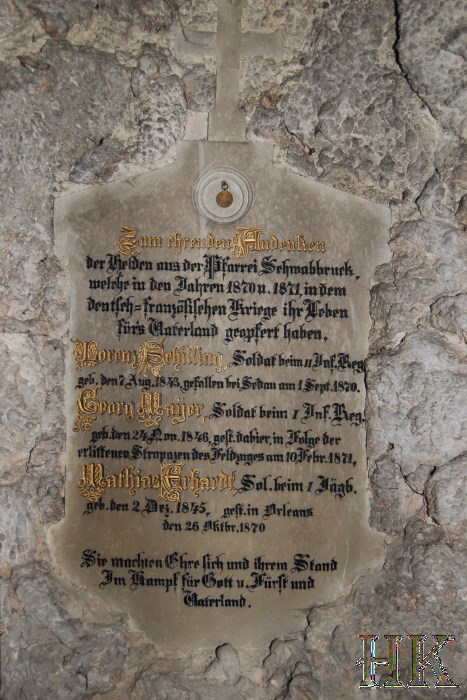 Zum ehrenden Andenken
der Helden aus der Pfarrei Schwabbruck,
welche in den Jahren 1870 u. 1871, in dem
deutsch=französischen Kriege ihr Leben
für's Vaterland geopfert haben.
Lorenz Schilling, Soldat beim 11 Inf. Reg.
geb. den 7. Aug. 1843, gefallen bei Sedan am 1. Sept. 1870.
Georg Mayer, Soldat beim 1 Inf. Reg.
geb. den 24. Nov. 1846, gest. dahier, in Folge der
erlittenen Strapazen des Feldzuges am 10 Febr. 1871,
Mathias Erhardt, Sol. beim 1 Jägb.
geb. den 2. Dez. 1845, gest. in Orleans
den 26 Oktbr. 1870
Sie machten Ehre sich und ihrem Stand
Im Kampf für Gott u. Fürst und
Vaterland.
HK